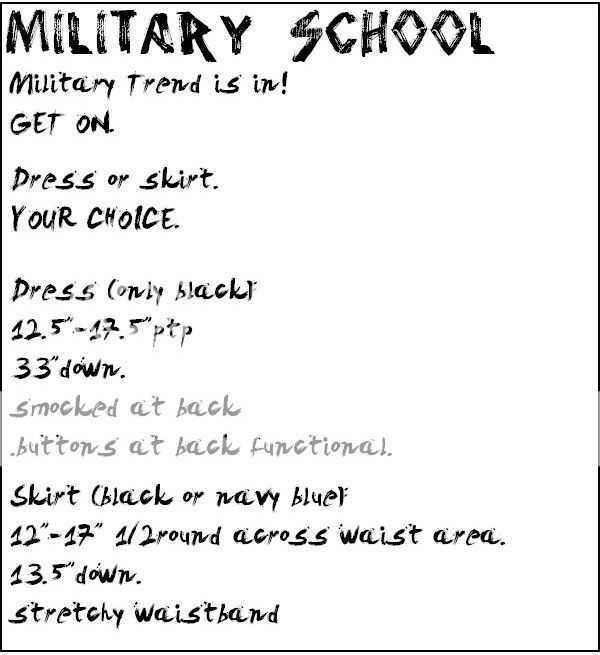 MILITARY SCHOOL
Military Trend is in!
GET ON.
Dress or skirt.
YOUR CHOICE.
Dress (only black):
12.5"-17.5"ptp
33"down.
smocked at back
.buttons at back functional.
Skirt (black or navy blue):
12"-17" 1/2round across waist area.
13.5"down.
stretchy waistband